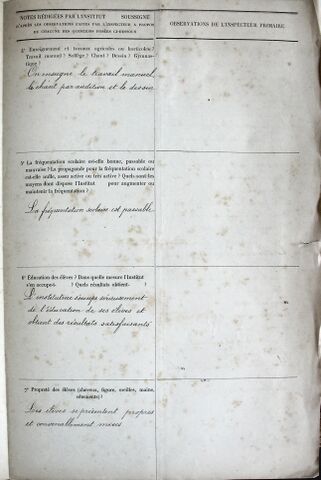 NOTES RÉDIGÉES PAR L'INSTITUT SOUSSIGNÉ
D'APRÈS LES OBSERVATIONS FAITES PAR L'INSPECTEUR A PROPOS
DE CHACUNE DES QUESTIONS POSÉES CI-DESSOUS
OBSERVATIONS DE L'INSPECTEUR PRIMAIRE
Enseignement et travaux agricoles ou horticoles?
Travail manuel? Solfège? Chant? Dessin? Gymnas-
tique?
On enseigne le travail manuel,
le chant par audition et le dessin
5° La fréquentation scolaire est-elle bonne, passable ou
mauvaise? La propagande pour la fréquentation scolaire
est-elle nulle, assez active ou très active? Quels sont les
moyens dont dispose l'Institut pour augmenter ou
maintenir la fréquentation?
La fréquentation scolaire est passable
6° Education des élèves? Dans quelle mesure l'Institut
s'en occupe-t- ? Quels résultats obtient- ?
L'institutrice s'occupe sérieusement
de l'éducation de ses élèves et
obtient des résultats satisfaisants
7° Propreté des élèves (cheveux, figure, oreilles, mains,
vêtements)?
Les élèves se présentent propres
et convenablement mises